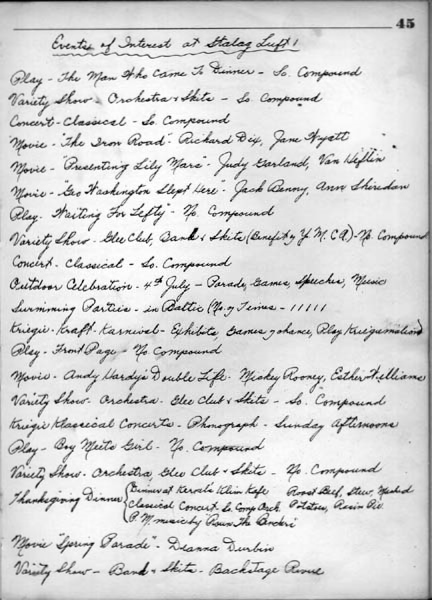 45
Events of Interest at Stalag Luft I
Play - The Man Who Came To Dinner - So. Compound
Variety Show - Orchestra & Skits - So. Compound
Concert - Classical - So. Compound
Movie - "The Iron Road" Richard Dix, Jane Wyatt
Movie - "Presenting Lily Mars" - Judy Garland, Van Heflin
Movie - "Geo Washington Slept Here" - Jack Benny, Ann Sheridan
Play - Waiting For Lefty - No. Compound
Variety Show - Glee Club, Band & Skits (Benefit of Y.M.C.A.) - No. Compound
Concert - Classical - So. Compound
Outdoor Celebration - 4th July - Parade, Games, Speeches, Music
Swimming Parties - in Baltic (No. of Times - 11111
Kriegie - Kraft - Karnival - Exhibits, Games of chance, Play Kriegsmaland)
Play - Front Page - No. Compound
Movie - Andy Hardy's Double Life - Mickey Rooney, Esther Williams
Variety Show - Orchestra - Glee Club & Skits - So. Compound
Kriegie Klassical Concerts - Phonograph - Sunday Afternoons
Play - Boy Meets Girl - No. Compound
Variety Show - Orchestra Glee Club & Skits - No. Compound
Thanksgiving Dinner { Dinner at Klein Kafe Roast Beef, Stew, Mashed
Classical Concert So. Comp. Orch. Potatoes, Raisin Pie.
P.M. music by Round The Benders
Movie "Spring Parade" - Deanna Durbin
Variety Show - Band & Skits - Backstage Revue